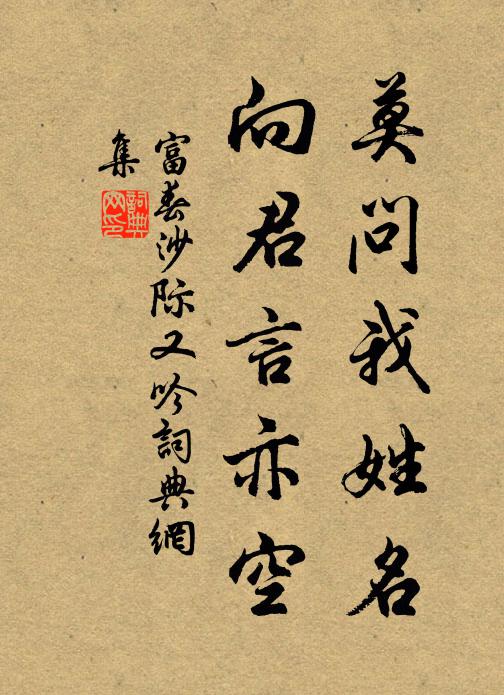 莫問我姓名
向君言亦空
富春沙际又吟詞典網
集
詞典網印